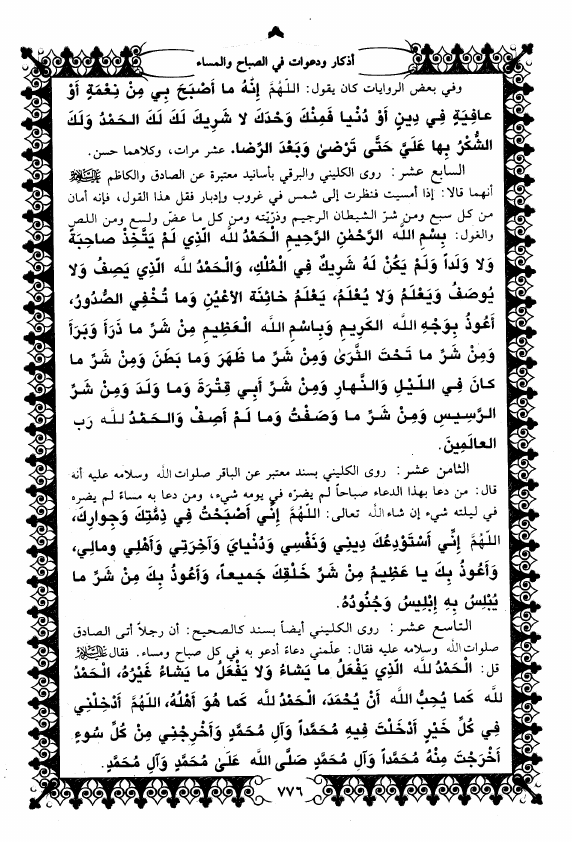 ٨
أذكار ودعوات في الصباح والمساء
وفي بعض الروايات كان يقول: اللهُمَّ إِنَّهُ ما أَصْبَحَ بِي مِنْ نِعْمَةٍ أَوْ
عافِيَةٍ فِي دِينٍ أَوْ دُنْيا فَمِنْكَ وَحْدَكَ لا شَرِيكَ لَكَ لَكَ الحَمْدُ وَلَكَ
الشُّكْرُ بِها عَلَيَّ حَتَّى تَرْضىٰ وَبَعْدَ الرِّضا. عشر مرات، وكلاهما حسن.
السابع عشر: روى الكليني والبرقي بأسانيد معتبرة عن الصادق والكاظم
أنهما قالا: إذا أمسيت فنظرت إلى شمس في غروب وإدبار فقل هذا القول، فإنه أمان
من كل سبع ومن شرّ الشيطان الرجيم وذرّيّته ومن كل ما عضّ ولسع ومن اللص
والغول: بِسْمِ اللهِ الرَّحْمٰنِ الرَّحِيمِ الحَمْدُ للهِ الَّذِي لَمْ يَتَّخِذْ صاحِبَةً
وَلا وَلَداً وَلَمْ يَكُنْ لَهُ شَرِيكٌ فِي المُلْكِ، وَالحَمْدُ للهِ الَّذِي يَصِفُ وَلا
يُوصَفُ وَيَعْلَمُ وَلا يُعْلَمُ، يَعْلَمُ خائِنَةَ الأَعْيُنِ وَما تُخْفِي الصُّدُورُ،
أَعُوذُ بِوَجْهِ اللهِ الكَرِيمِ وَبِاسْمِ اللهِ العَظِيمِ مِنْ شَرِّ ما ذَرَأَ وَبَرَأَ
وَمِنْ شَرِّ ما تَحْتَ الثَّرىٰ وَمِنْ شَرِّ ما ظَهَرَ وَما بَطَنَ وَمِنْ شَرِّ ما
كانَ فِي اللَّيْلِ وَالنَّهارِ وَمِنْ شَرِّ أَبِي قِتْرَةَ وَما وَلَدَ وَمِنْ شَرِّ
الرَّسِيسِ وَمِنْ شَرِّ ما وَصَفْتُ وَما لَمْ أَصِفْ وَالحَمْدُ للهِ رَبِّ
العالَمِينَ.
الثامن عشر: روى الكليني بسند معتبر عن الباقر صلوات الله وسلامه عليه أنه
قال: من دعا بهذا الدعاء صباحاً لم يضرّه في يومه شيء، ومن دعا به مساءً لم يضره
في ليلته شيء إن شاء الله تعالى: اللهُمَّ إِنِّي أَصْبَحْتُ فِي ذِمَّتِكَ وَجِوارِكَ،
اللهُمَّ إِنِّي أَسْتَوْدِعُكَ دِينِي وَنَفْسِي وَدُنْيايَ وَآخِرَتِي وَأَهْلِي وَمالِي،
وَأَعُوذُ بِكَ يا عَظِيمُ مِنْ شَرِّ خَلْقِكَ جَمِيعاً، وَأَعُوذُ بِكَ مِنْ شَرِّ ما
يُبْلِسُ بِهِ إِبْلِيسُ وَجُنُودُهُ.
التاسع عشر: روى الكليني أيضاً بسند كالصحيح: أن رجلاً أتى الصادق
صلوات الله وسلامه عليه فقال: علّمني دعاءً أدعو به في كل صباح ومساء. فقال
قل: الحَمْدُ للهِ الَّذِي يَفْعَلُ ما يَشاءُ وَلا يَفْعَلُ ما يَشاءُ غَيْرُهُ، الحَمْدُ
للهِ كَما يُحِبُّ اللهُ أَنْ يُحْمَدَ، الحَمْدُ للهِ كَما هُوَ أَهْلُهُ، اللهُمَّ أَدْخِلْنِي
فِي كُلِّ خَيْرٍ أَدْخَلْتَ فِيهِ مُحَمَّداً وَآلَ مُحَمَّدٍ وَأَخْرِجْنِي مِنْ كُلِّ سُوءٍ
أَخْرَجْتَ مِنْهُ مُحَمَّداً وَآلَ مُحَمَّدٍ صَلَّى اللهُ عَلَىٰ مُحَمَّدٍ وَآلِ مُحَمَّدٍ.
٧٧٦